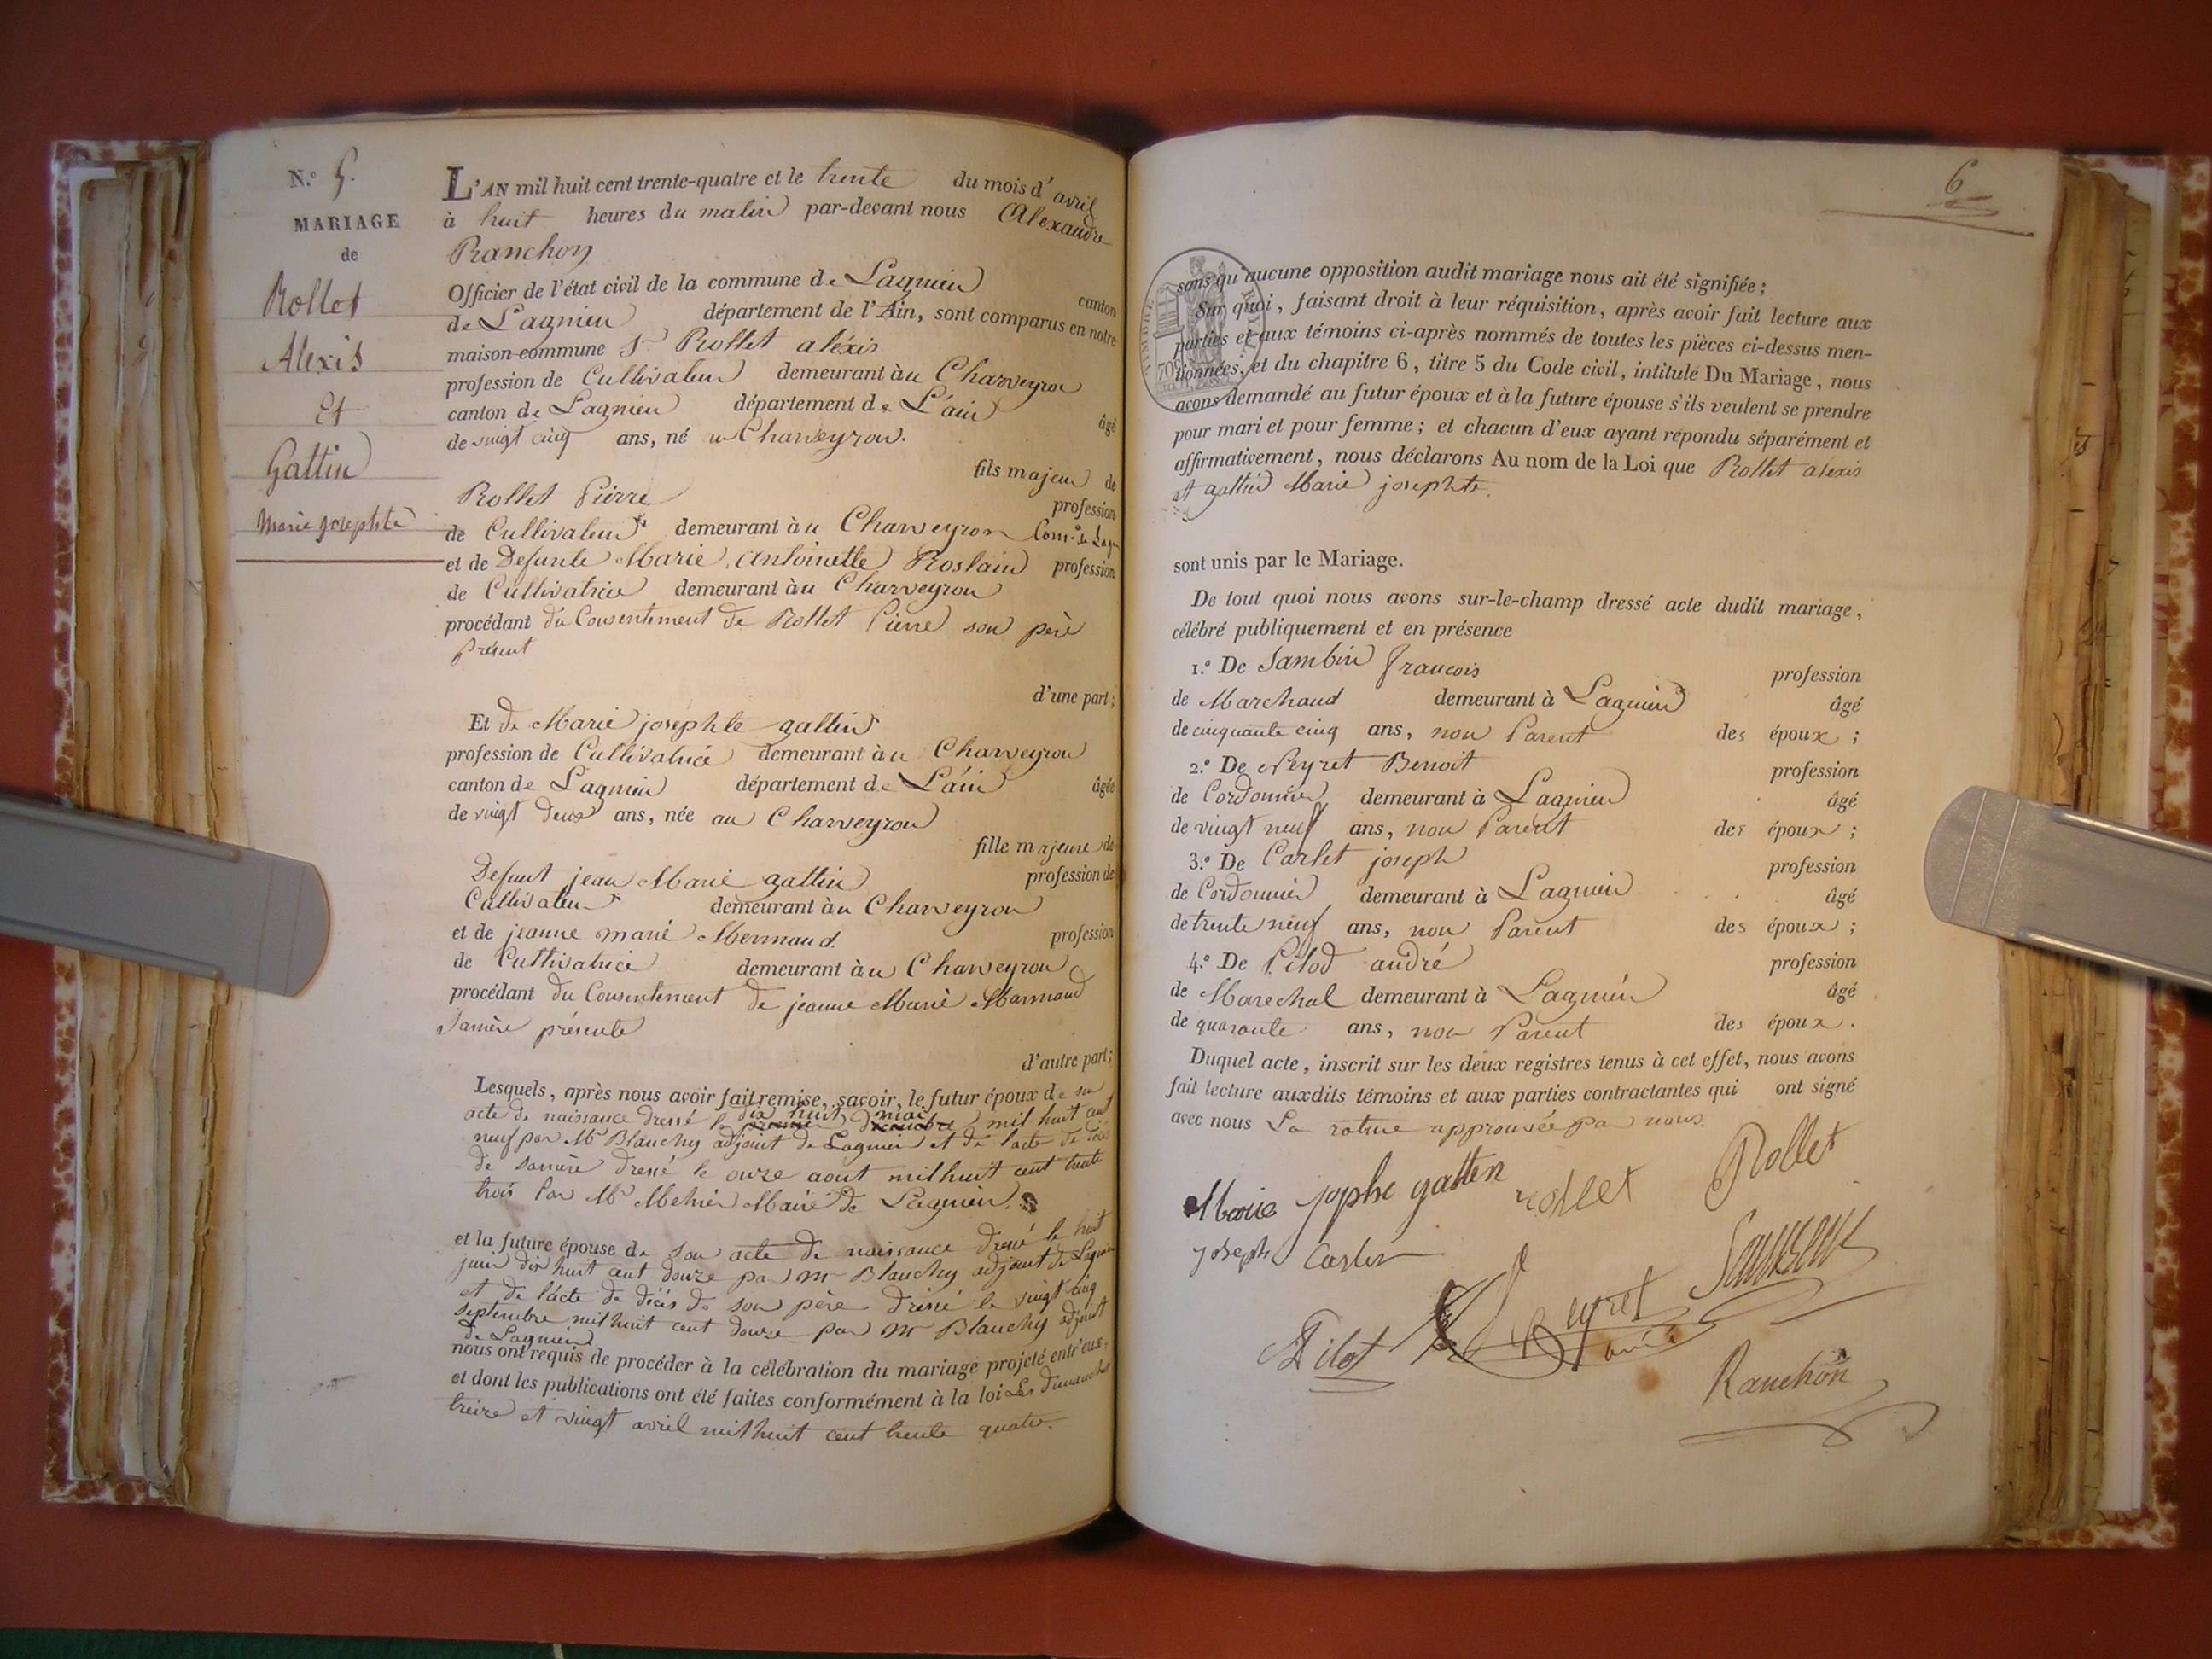 N.o 5.
MARIAGE
de
Rollet
Alexis
Et
Gattin
Marie josephte
L'AN mil huit cent trente-quatre et le trente du mois d'avril
à huit heures du matin par-devant nous Alexandre
Ranchon
Officier de l'état civil de la commune de Lagnieu canton
de Lagnieu département de l'Ain, sont comparus en notre
maison commune Sr Rollet aléxis
profession de Cultivateur demeurant à u Charveyron
canton de Lagnieu département de L'ain âgé
de vingt cinq ans, né u Charveyron.
fils majeur de
Rollet Pierre profession
de Cultivateur demeurant à u Charveyron Com.e de Lagn
et de Defunte Marie Antoinette Roslain profession
de Cultivatrice demeurant à u Charveyron
procédant du Consentement de Rollet Pierre son père
Présent
d'une part;
Et de Marie josephte gattin
profession de Cultivatrice demeurant à u Charveyron
canton de Lagnieu département de L'ain âgée
de vingt deux ans, née au Charveyron
fille majeure de
Defunt jean Marie gattin profession de
Cultivateur demeurant à u Charveyron
et de jeanne marie Mermaud profession
de Cultivatrice demeurant à u Charveyron
procédant du Consentement de jeanne Marie Marmaud
Samère présente
d'autre part;
Lesquels, après nous avoir fait remise, savoir, le futur époux de son
acte de naissance dressé le dix huit mai mil huit cent
neuf par Mr Blanchy adjoint de Lagnieu et de l'acte de décès
de samère dressé le onze aout mil huit cent trente
trois Par Mr Mehier Maire de Lagnieu.
et la future épouse de son acte de naissance dressé le huit
juin dix huit cent douze par mr Blanchy adjoint de Lagnieu
et de l'acte de décès de son père dressé le vingt cinq
septembre mil huit cent douze par mr Blanchy adjoint
de Lagnieu
nous ont requis de procéder à la célébration du mariage projeté entr'eux,
et dont les publications ont été faites conformément à la loi Les dimanches
treize et vingt avril mil huit cent trente quatre.
6
sans qu'aucune opposition audit mariage nous ait été signifiée;
Sur quoi, faisant droit à leur réquisition, après avoir fait lecture aux
parties et aux témoins ci-après nommés de toutes les pièces ci-dessus men-
tionnées, et du chapitre 6, titre 5 du Code civil, intitulé Du Mariage, nous
avons demandé au futur époux et à la future épouse s'ils veulent se prendre
pour mari et pour femme; et chacun d'eux ayant répondu séparément et
affirmativement, nous déclarons Au nom de la Loi que Rollet alexis
et gattin Marie josephte.
sont unis par le Mariage.
De tout quoi nous avons sur-le-champ dressé acte dudit mariage,
célébré publiquement et en présence
1.o De Sambin francois profession
de Marchand demeurant à Lagnieu âgé
de cinquante cinq ans, non Parent des époux;
2.o De Neyret Benoit profession
de Cordonnier demeurant à Lagnieu âgé
de vingt neuf ans, non Parent des époux;
3.o De Carlet joseph profession
de Cordonnier demeurant à Lagnieu âgé
de trente neuf ans, non Parent des époux;
4.o De Pilod andré profession
de Marechal demeurant à Lagnieu âgé
de quarante ans, non Parent des époux.
Duquel acte, inscrit sur les deux registres tenus à cet effet, nous avons
fait lecture auxdits témoins et aux parties contractantes qui ont signé
avec nous La rature approuvée par nous.
Marie jophe gatten rollet Rollet
joseph Carlet
Pilot Neyret
Ranchon